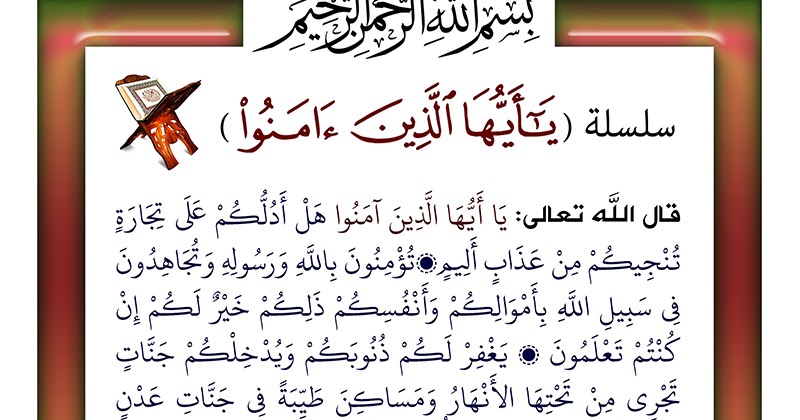 بِسْمِ اللَّهِ الرَّحْمَنِ الرَّحِيمِ
سلسلة (يَٰٓأَيُّهَا ٱلَّذِينَ ءَامَنُوا۟)
قال الله تعالى: يَا أَيُّهَا الَّذِينَ آمَنُوا هَلْ أَدُلُّكُمْ عَلَى تِجَارَةٍ
تُنْجِيكُمْ مِنْ عَذَابٍ أَلِيمٍ ۞ تُؤْمِنُونَ بِاللَّهِ وَرَسُولِهِ وَتُجَاهِدُونَ
فِي سَبِيلِ اللَّهِ بِأَمْوَالِكُمْ وَأَنْفُسِكُمْ ذَلِكُمْ خَيْرٌ لَكُمْ إِنْ
كُنْتُمْ تَعْلَمُونَ ۞ يَغْفِرْ لَكُمْ ذُنُوبَكُمْ وَيُدْخِلْكُمْ جَنَّاتٍ
تَجْرِي مِنْ تَحْتِهَا الأَنْهَارُ وَمَسَاكِنَ طَيِّبَةً فِي جَنَّاتِ عَدْنٍ